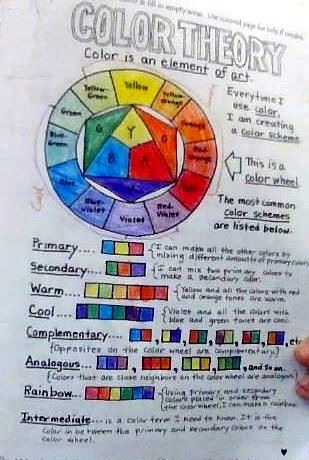 color & fill in empty areas. Use colored page for help if needed.
COLOR THEORY
Color is an element of art.
Everytime I
use color,
I am creating
a color scheme.
This is a
color wheel.
The most common
color schemes
are listed below.
Yellow
Yellow-Orange
Orange
Red-Orange
Red
Red-Violet
Violet
Blue-Violet
Blue
Blue-Green
Green
Yellow-Green
Y
O
R
V
B
G
Cool
Primary.... I can make all the other colors by
mixing different amounts of primary colors
Secondary.... I can mix two primary colors to
make a secondary color.
Warm.... Yellow and all the colors with red
and orange tones are warm.
Cool.... Violet and all the colors with
blue and green tones are cool.
Complementary.... etc
(Opposites on the color wheel are complementary)
Analogous.... and so on.
(Colors that are close neighbors on the color wheel are analogous)
Rainbow.... Using primary and secondary
colors placed in order from
the color wheel, I can make a rainbow.
Intermediate — is a color term I need to know. It is the
color in between the primary and secondary colors on the
color wheel.